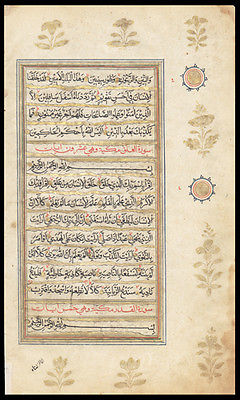 والتين والزيتون وطور سينين وهذا البلد الامين لقد خلقنا
الانسان في احسن تقويم ثم رددناه اسفل سافلين الا
الذين امنوا وعملوا الصالحات فلهم اجر غير ممنون فما
يكذبك بعد بالدين اليس الله باحكم الحاكمين
سورة العلق مكية وهي
بسم الله الرحمن الرحيم
اقرا باسم ربك الذي خلق خلق الانسان من علق اقرا وربك
الاكرم الذي علم بالقلم علم الانسان ما لم يعلم كلا ان
الانسان ليطغى ان راه استغنى ان الى ربك الرجعى ارايت
الذي ينهى عبدا اذا صلى ارايت ان كان على الهدى او امر
بالتقوى ارايت ان كذب وتولى الم يعلم بان الله يرى كلا لئن
لم ينته لنسفعا بالناصية ناصية كاذبة خاطئة فليدع
ناديه سندع الزبانية كلا لا تطعه واسجد واقترب
سورة القدر مكية وهي خمس ايات
بسم الله الرحمن الرحيم